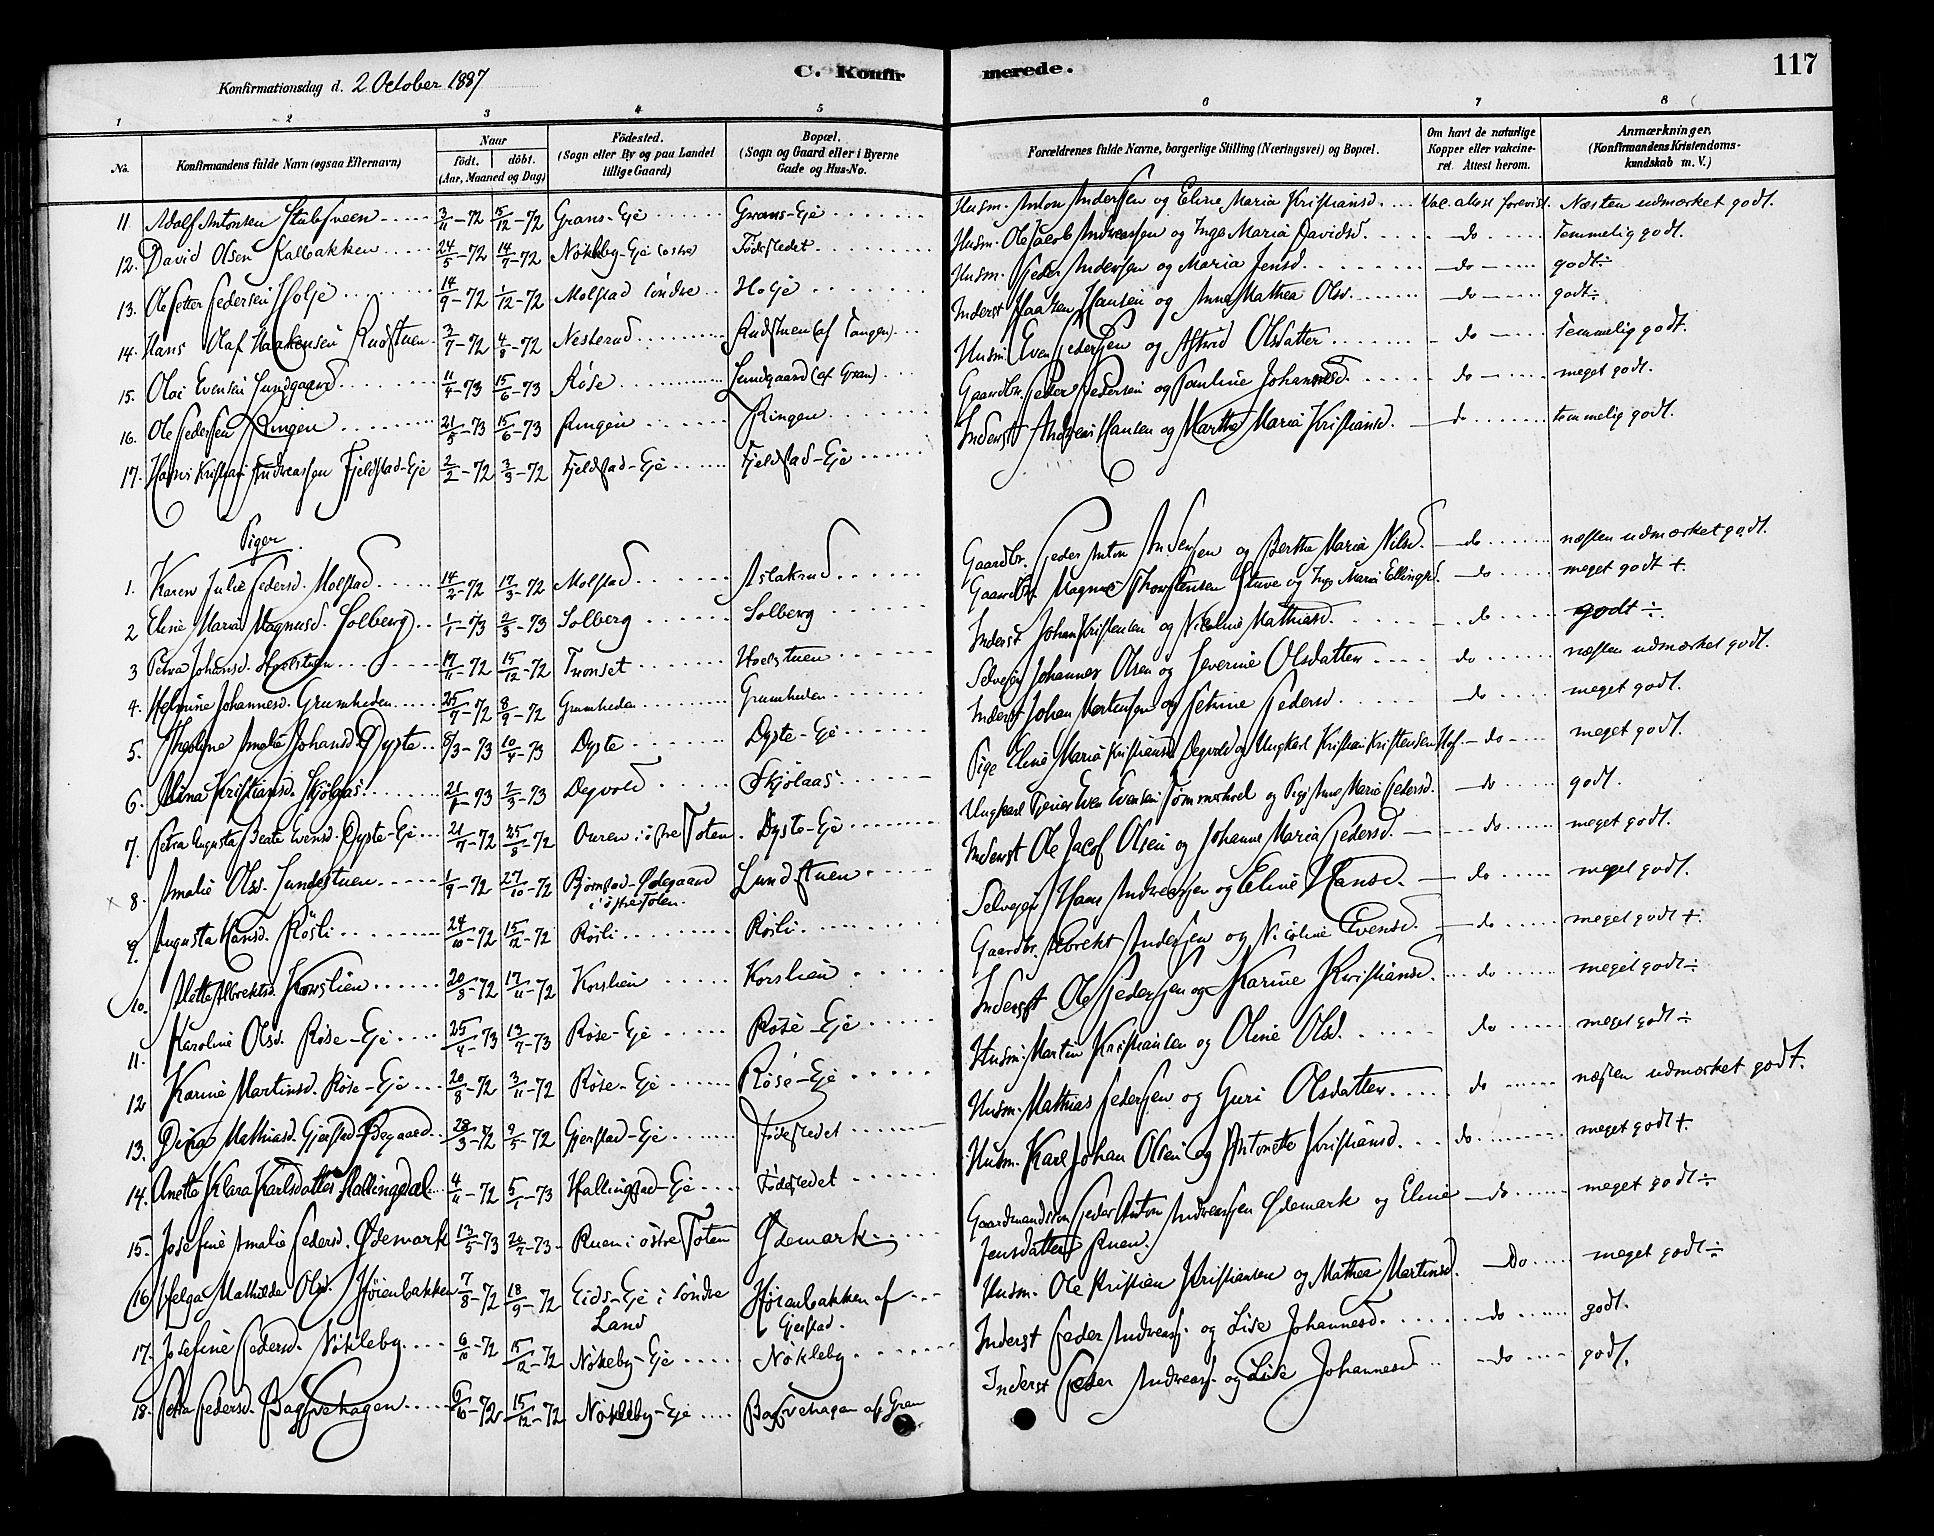 Konfirmationsdag d. 2 October 1887
C. Konfir merede.
117
1 2 3 4 5 6 7 8
No. Konfirmandens fulde Navn (ogsaa Efternavn)
Naar
födt. döbt.
(Aar, Maaned og Dag)
Födested.
(Sogn eller By og paa Landet
tillige Gaard)
Bopæl.
(Sogn og Gaard eller i Byerne
Gade og Hus-No.
Forældrenes fulde Navne, borgerlige Stilling (Næringsvei) og Bopæl.
Om havt de naturlige
Kopper eller vakcine-
ret. Attest herom.
Anmærkninger.
(Konfirmandens Kristendoms-
kundskab m. V.)
11. Adolf Antonsen 3/11-72 15/12-72 Grans-Eje Grans-Eje Husm. Anton Andersen og Eline Maria Kristiansd. Vac. attest forevist. Næsten udmærket godt.
12. David Olsen Kalbakken 24/5-72 14/7-72 Nökleby-Eje (østre) Födestedet Husm. Ole Jacob Andreassen og Inga Maria Davidsd. do temmelig godt.
13. Ole Petter Pedersen Holje 14/9-72 1/12-72 Molstad söndre Holje Husm. Peder Andersen og Maria Jensd. do godt ÷
14. Hans Olaf Haakensen Rudstuen 3/7-72 4/8-72 Nesterud Rudstuen (af Tangen) Inderst Haaken Hansen og Anne Mathea Olsd. do godt ÷
15. Olai Evensen Lundgaard 11/4-73 15/6-73 Röse Lundgaard (af Gran) Husm. Even Pedersen og Astrid Olsdatter do temmelig godt.
16. Ole Pedersen Ringen 21/5-73 15/6-73 Ringen Ringen Gaardbr. Peder Pedersen og Pauline Johannesd. do meget godt.
17. Hans Kristian Andreassen Fjeldstad-Eje 2/2-72 3/3-72 Fjeldstad-Eje Fjeldstad-Eje Inderst Andreas Hansen og Marthe Maria Kristiansd. do temmelig godt.
Piger.
1. Karen Julie Pedersd. Molstad 14/2-72 17/3-72 Molstad Aslakrud Gaardbr. Peder Anton Andersen og Berthe Maria Nilsd. do næsten udmærket godt.
2 Eline Maria Magnusd. Solberg 1/1-73 2/3-73 Solberg Solberg Gaardbr. Magnus Thorstensen Stuve og Inge Maria Ellingsd. do meget godt +.
3 Petra Johansd. Hoelstuen 17/11-72 15/12-72 Tronset Hoelstuen Inderst Johan Kristensen og Nicoline Mathiasd. do godt ÷.
4. Helmine Johannesd. Grumheden 25/7-72 8/9-72 Grumheden Grumheden Selvejer Johannes Olsen og Severine Olsdatter do næsten udmærket godt.
5. Theoline Amalie Johansd. Dyste 8/3-73 10/4-73 Dyste Dyste-Eje Inderst Johan Mortensen og Petrine Pedersd. do meget godt.
6. Alina Kristiansd. Skjölaas 21/1-73 2/3-73 Degvold Skjölaas Pige Eline Maria Kristiansd. Degvold og Ungkarl Kristian Kristensen Hof. do meget godt.
7. Petra Augusta Beate Evensd. Dyste-Eje 21/7-72 25/8-72 Ouren i östre Toten Dyste-Eje Ungkarl Even Evensen og Pige Anne Maria Pedersd. do godt.
8. Amalie Olsd. Lundstuen 1/9-72 27/10-72 Björnstad-Ødegaard
i östre Toten. Lundstuen Inderst Ole Jacob Olsen og Johanne Maria Pedersd. do meget godt.
9. Augusta Hansd. Rösli 24/10-72 15/12-72 Rösli Rösli Selvejer Hans Andreassen og Eline Hansd. do meget godt.
10. Mette Albrektsd. Korslien 20/8-72 17/11-72 Korslien Korslien Gaardbr. Albrekt Andersen og Nicoline Evensd. do meget godt +.
11. Karoline Olsd. Röse-Eje 25/4-73 13/7-73 Röse-Eje Röse-Eje Inderst Ole Pedersen og Karine Kristiansd. do meget godt ÷
12 Karine Martinsd. Röse-Eje 20/8-72 3/11-72 Röse-Eje Röse-Eje Husm. Martin Kristiansen og Oline Olsd. do meget godt ÷
13. Dina Mathiasd. Gjerstad 28/3-72 9/5-72 Gjerstad-Eje Födestedet Husm. Mathias Pedersen og Guri Olsdatter do næsten udmærket godt.
14. Anette Klara Karlsdatter Hallingdal 4/11-72 5/1-73 Hallingstad-Eje Födestedet Husm. Karl Johan Olsen og Antonette Kristiansd. do meget godt +.
15. Josefine Amalie Pedersd. Ødemark 13/5-73 20/7-73 Ruen i östre Toten Ødemark Gaardmandssøn Peder Anton Andreassen Ødemark og Eline
Jensdatter Ruen. do meget godt ÷
16 Helga Mathilde Olsd. Höienbakken 7/8-72 18/9-72 Eids-Eje i Söndre
Land Höienbakken af
Gjerstad. Husm. Ole Kristian Kristiansen og Mathea Martinsd. Do meget godt ÷
17. Josefine Pedersd. Nökleby 6/10-72 15/12-72 Nökleby-Eje Nökleby Inderst Peder Andreass. og Lise Johannesd. do godt.
18. Petra Pedersd. Bagsvehagen 6/10-72 15/12-72 Nökleby-Eje Bagsvehagen af Gran Inderst Peder Andreass. og Lise Johannesd. do godt.